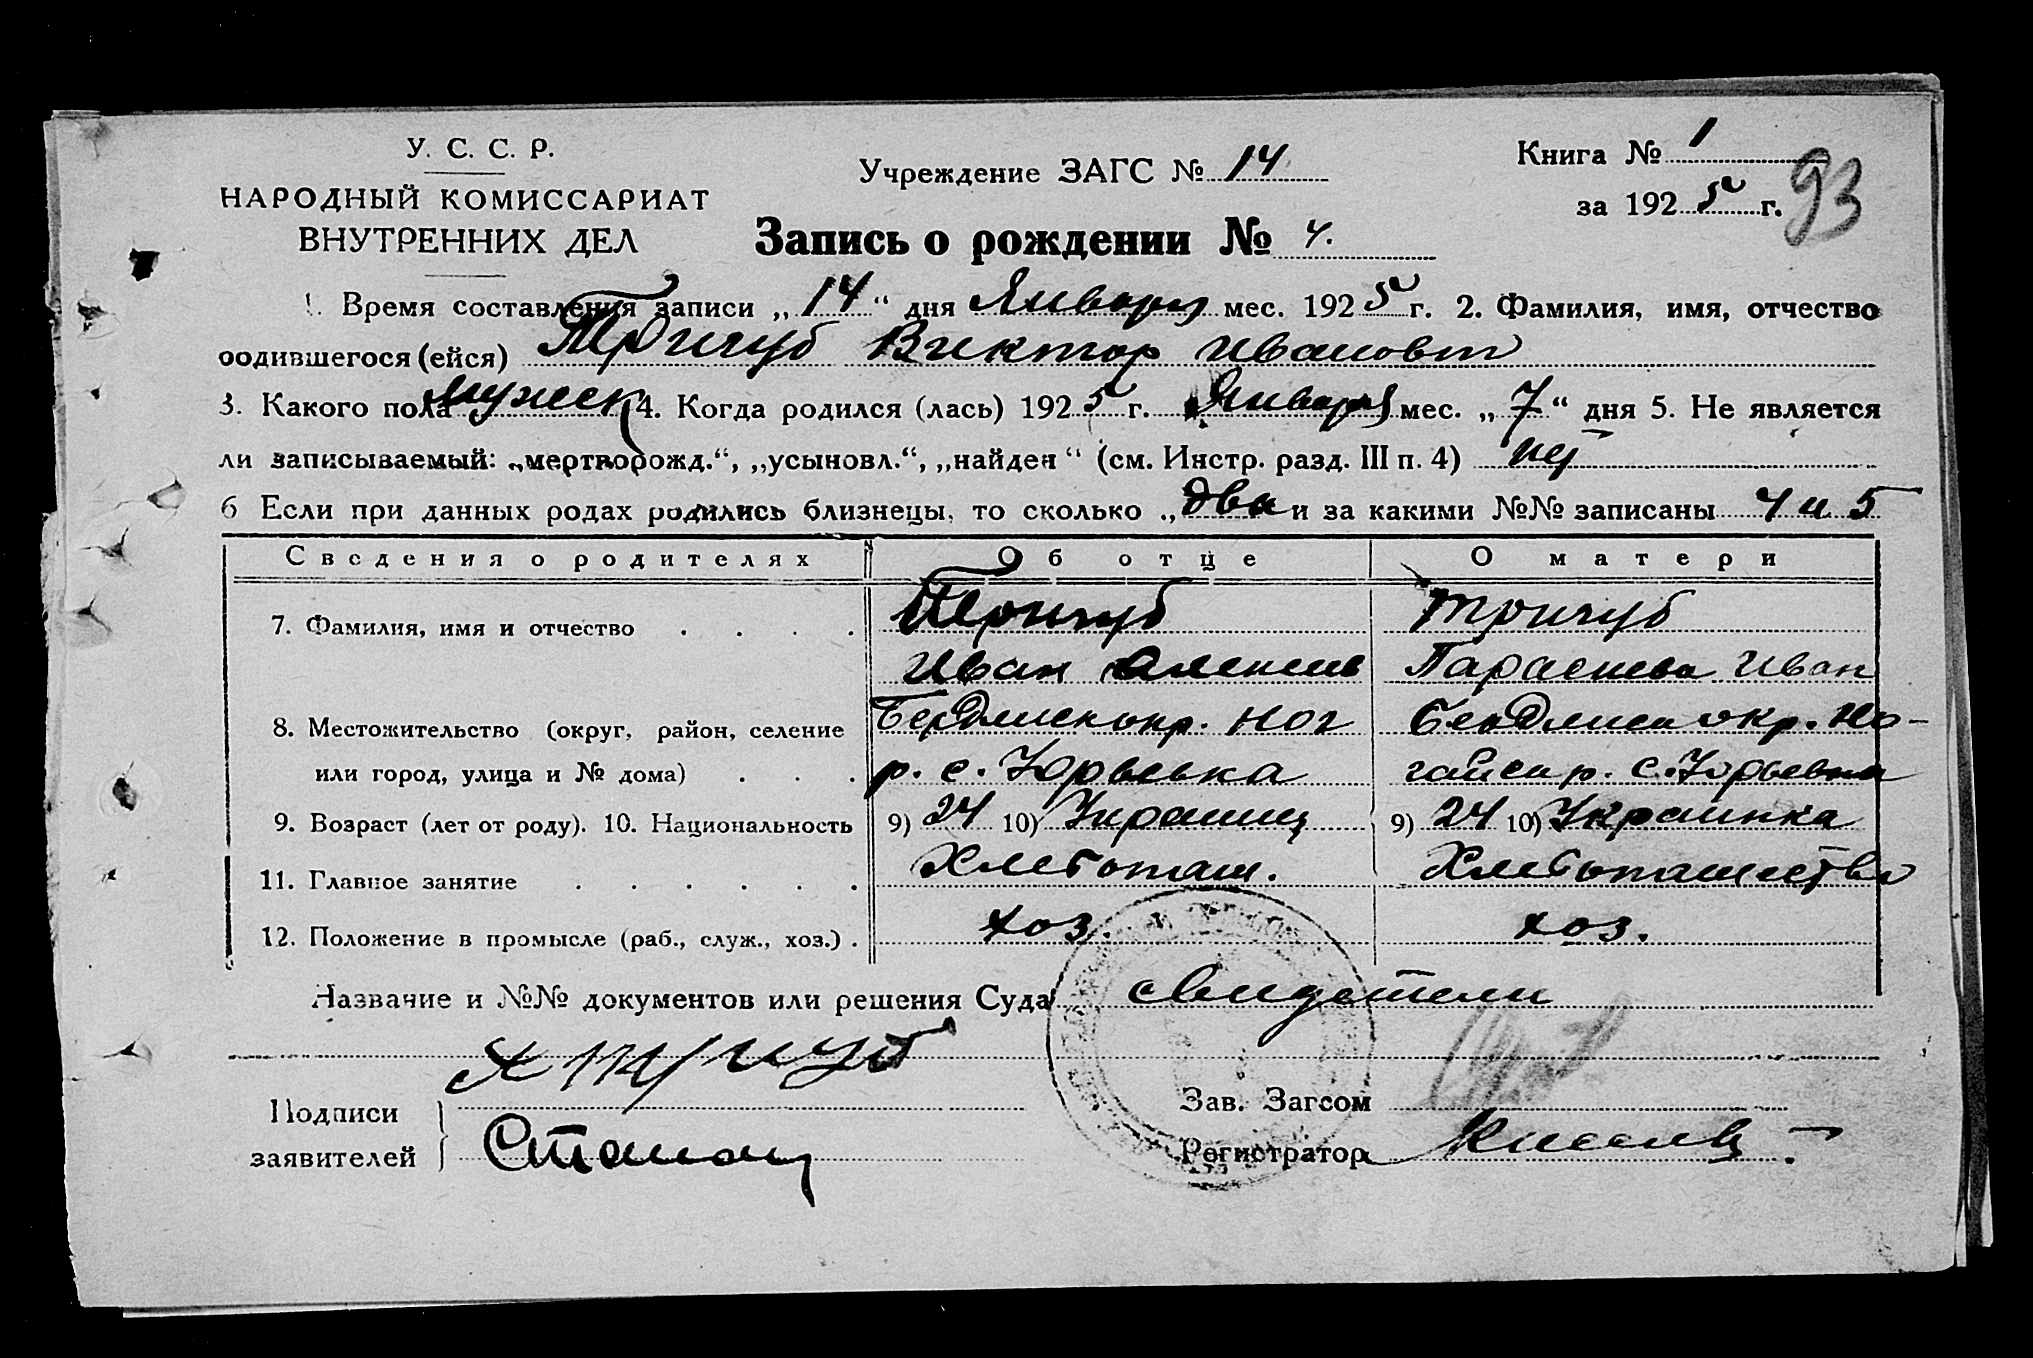 У. С. С. Р.
НАРОДНЫЙ КОМИССАРИАТ
ВНУТРЕННИХ ДЕЛ
Учреждение ЗАГС № 14
Книга № 1
за 1925 г.
93
Запись о рождении № 4.
1. Время составления записи „14“ дня Января мес. 1925 г. 2. Фамилия, имя, отчество
родившегося (ейся) Тричуб Виктор Иванович
3. Какого пола мужск 4. Когда родился (лась) 1925 г. Января мес. „7“ дня 5. Не является
ли записываемый: „мертворожд.“, „усыновл.“, „найден“ (см. Инстр. разд. III п. 4) нет
6 Если при данных родах родились близнецы, то сколько „два и за какими №№ записаны 4 и 5
Сведения о родителях Об отце О матери
7. Фамилия, имя и отчество . . . . Тричуб Тричуб
Иван Алексеев Парасиева Иван
8. Местожительство (округ, район, селение Бердянск окр. Ног Бердянск окр. Но-
или город, улица и № дома) . . . р. с. Юрьевка гайск р. с. Юрьевка
9. Возраст (лет от роду). 10. Национальность 9) 24 10) Украинец 9) 24 10) Украинка
11. Главное занятие . . . . . . Хлебопаш. Хлебопашество
12. Положение в промысле (раб., служ., хоз.) . хоз. хоз.
Название и №№ документов или решения Суда свидетели
Х тричуб
Подписи
заявителей
Зав. Загсом
Регистратор